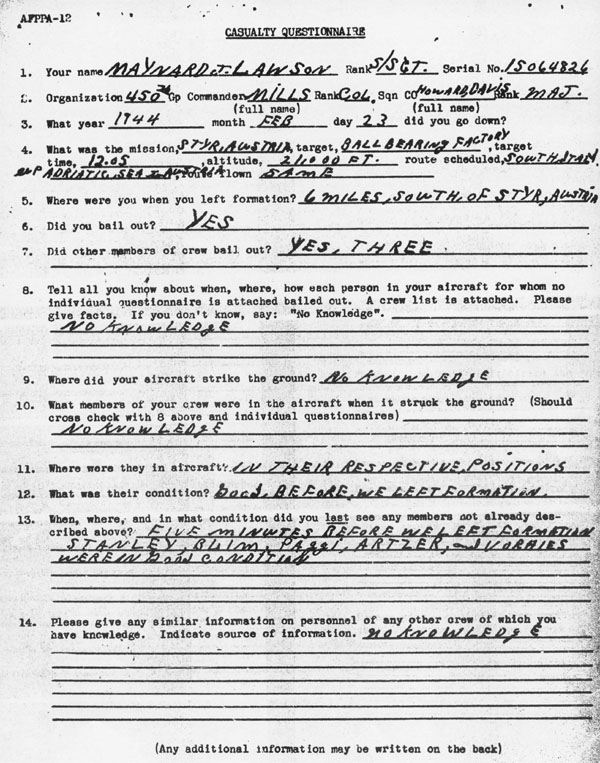 AFPPA-12
CASUALTY QUESTIONNAIRE
1. Your name MAYNARD J. LAWSON Rank S/SGT. Serial No. 15064826
2. Organization 450TH Gp Commander MILLS Rank COL. Sqn CO HOWARD DAVIS Rank MAJ.
(full name) (full name)
3. What year 1944 month FEB day 23 did you go down?
4. What was the mission, STYR, AUSTRIA, target, BALL BEARING FACTORY, target
time, 12.05, altitude, 21,000 FT. route scheduled, SOUTH ITALY
UP ADRIATIC SEA, route flown SAME
5. Where were you when you left formation? 6 MILES, SOUTH, OF STYR, AUSTRIA
6. Did you bail out? YES
7. Did other members of crew bail out? YES, THREE
8. Tell all you know about when, where, how each person in your aircraft for whom no
individual questionnaire is attached bailed out. A crew list is attached. Please
give facts. If you don't know, say: "No Knowledge".
NO KNOWLEDGE
9. Where did your aircraft strike the ground? NO KNOWLEDGE
10. What members of your crew were in the aircraft when it struck the ground? (Should
cross check with 8 above and individual questionnaires)
NO KNOWLEDGE
11. Where were they in aircraft? IN THEIR RESPECTIVE, POSITIONS
12. What was their condition? Good, BEFORE, WE LEFT FORMATION.
13. When, where, and in what condition did you last see any members not already des-
cribed above? FIVE MINUTES BEFORE WE LEFT FORMATION
STANLEY, BLIM, PAGGI, ARTZER, and VORHIES
WERE IN GOOD CONDITION
14. Please give any similar information on personnel of any other crew of which you
have knowledge. Indicate source of information. NO KNOWLEDGE
(Any additional information may be written on the back)